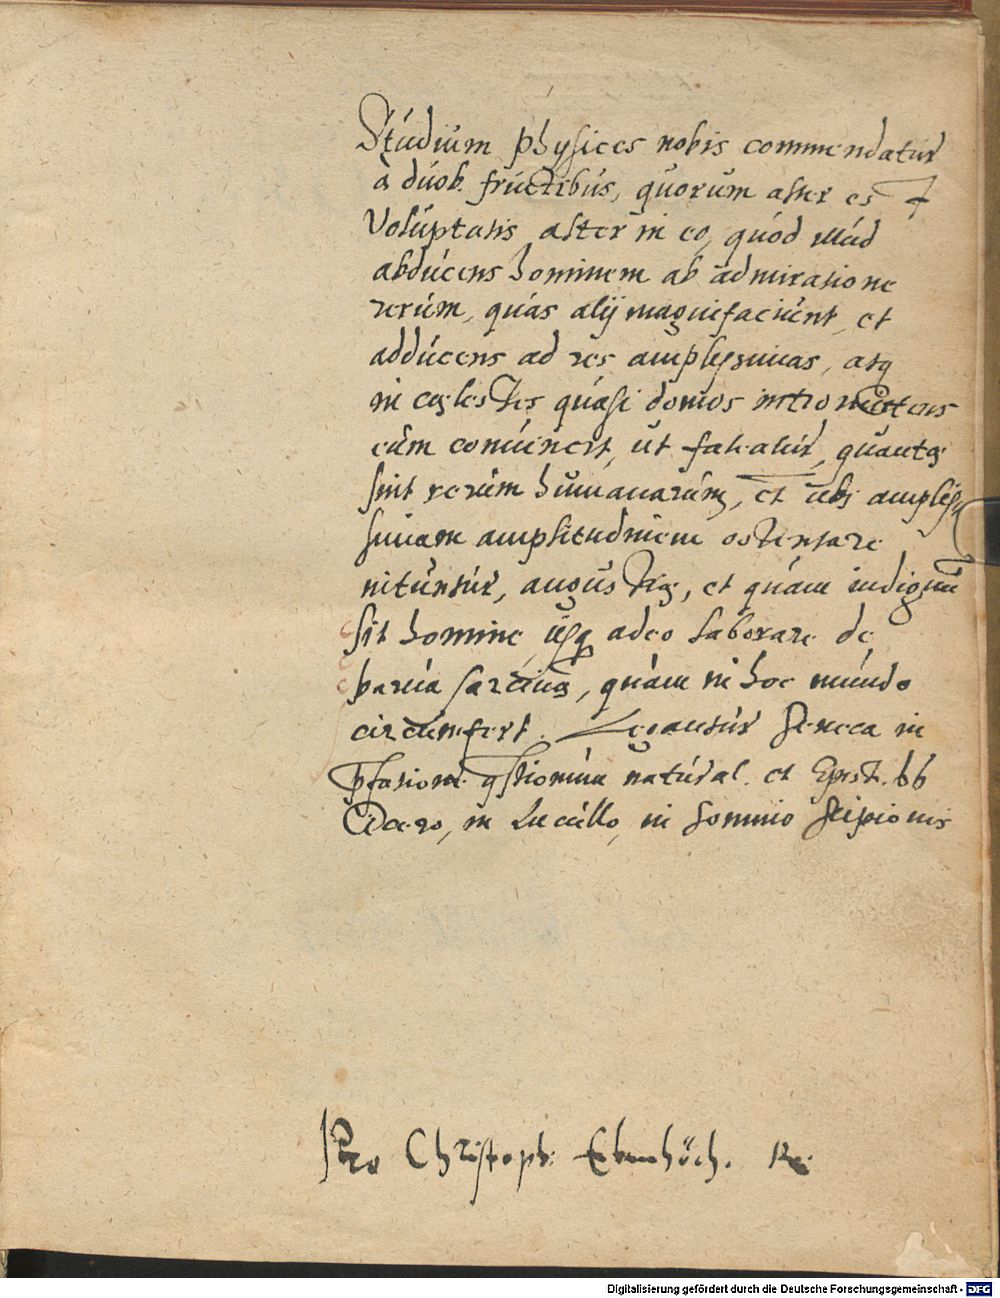 Studium physices nobis commendatur
à duob. fructibus, quorum alter est
Voluptatis alter in eo, quòd illud
abducens hominem ab admiratione
rerum, quas alij magnifaciunt, et
adducens ad res amplissimas, atq
in cęlestes quasi domos intromittens
eum convincit, ut fateatur, quantę
sint rerum humanarum, et ubi amplis
simam amplitudinem ostentare
nituntur, angustię, et quàm indignum
sit homine, usq adeo laborare de
parua sarcina, quàm in hoc mundo
circumfert. Legantur Seneca in
pfation. qstionum natural. et Epist. 66
Cicero, in Lucullo, in Somnio Scipionis
Pro Christoph: Ebenhöch.
Digitalisierung gefördert durch die Deutsche Forschungsgemeinschaft - DFG